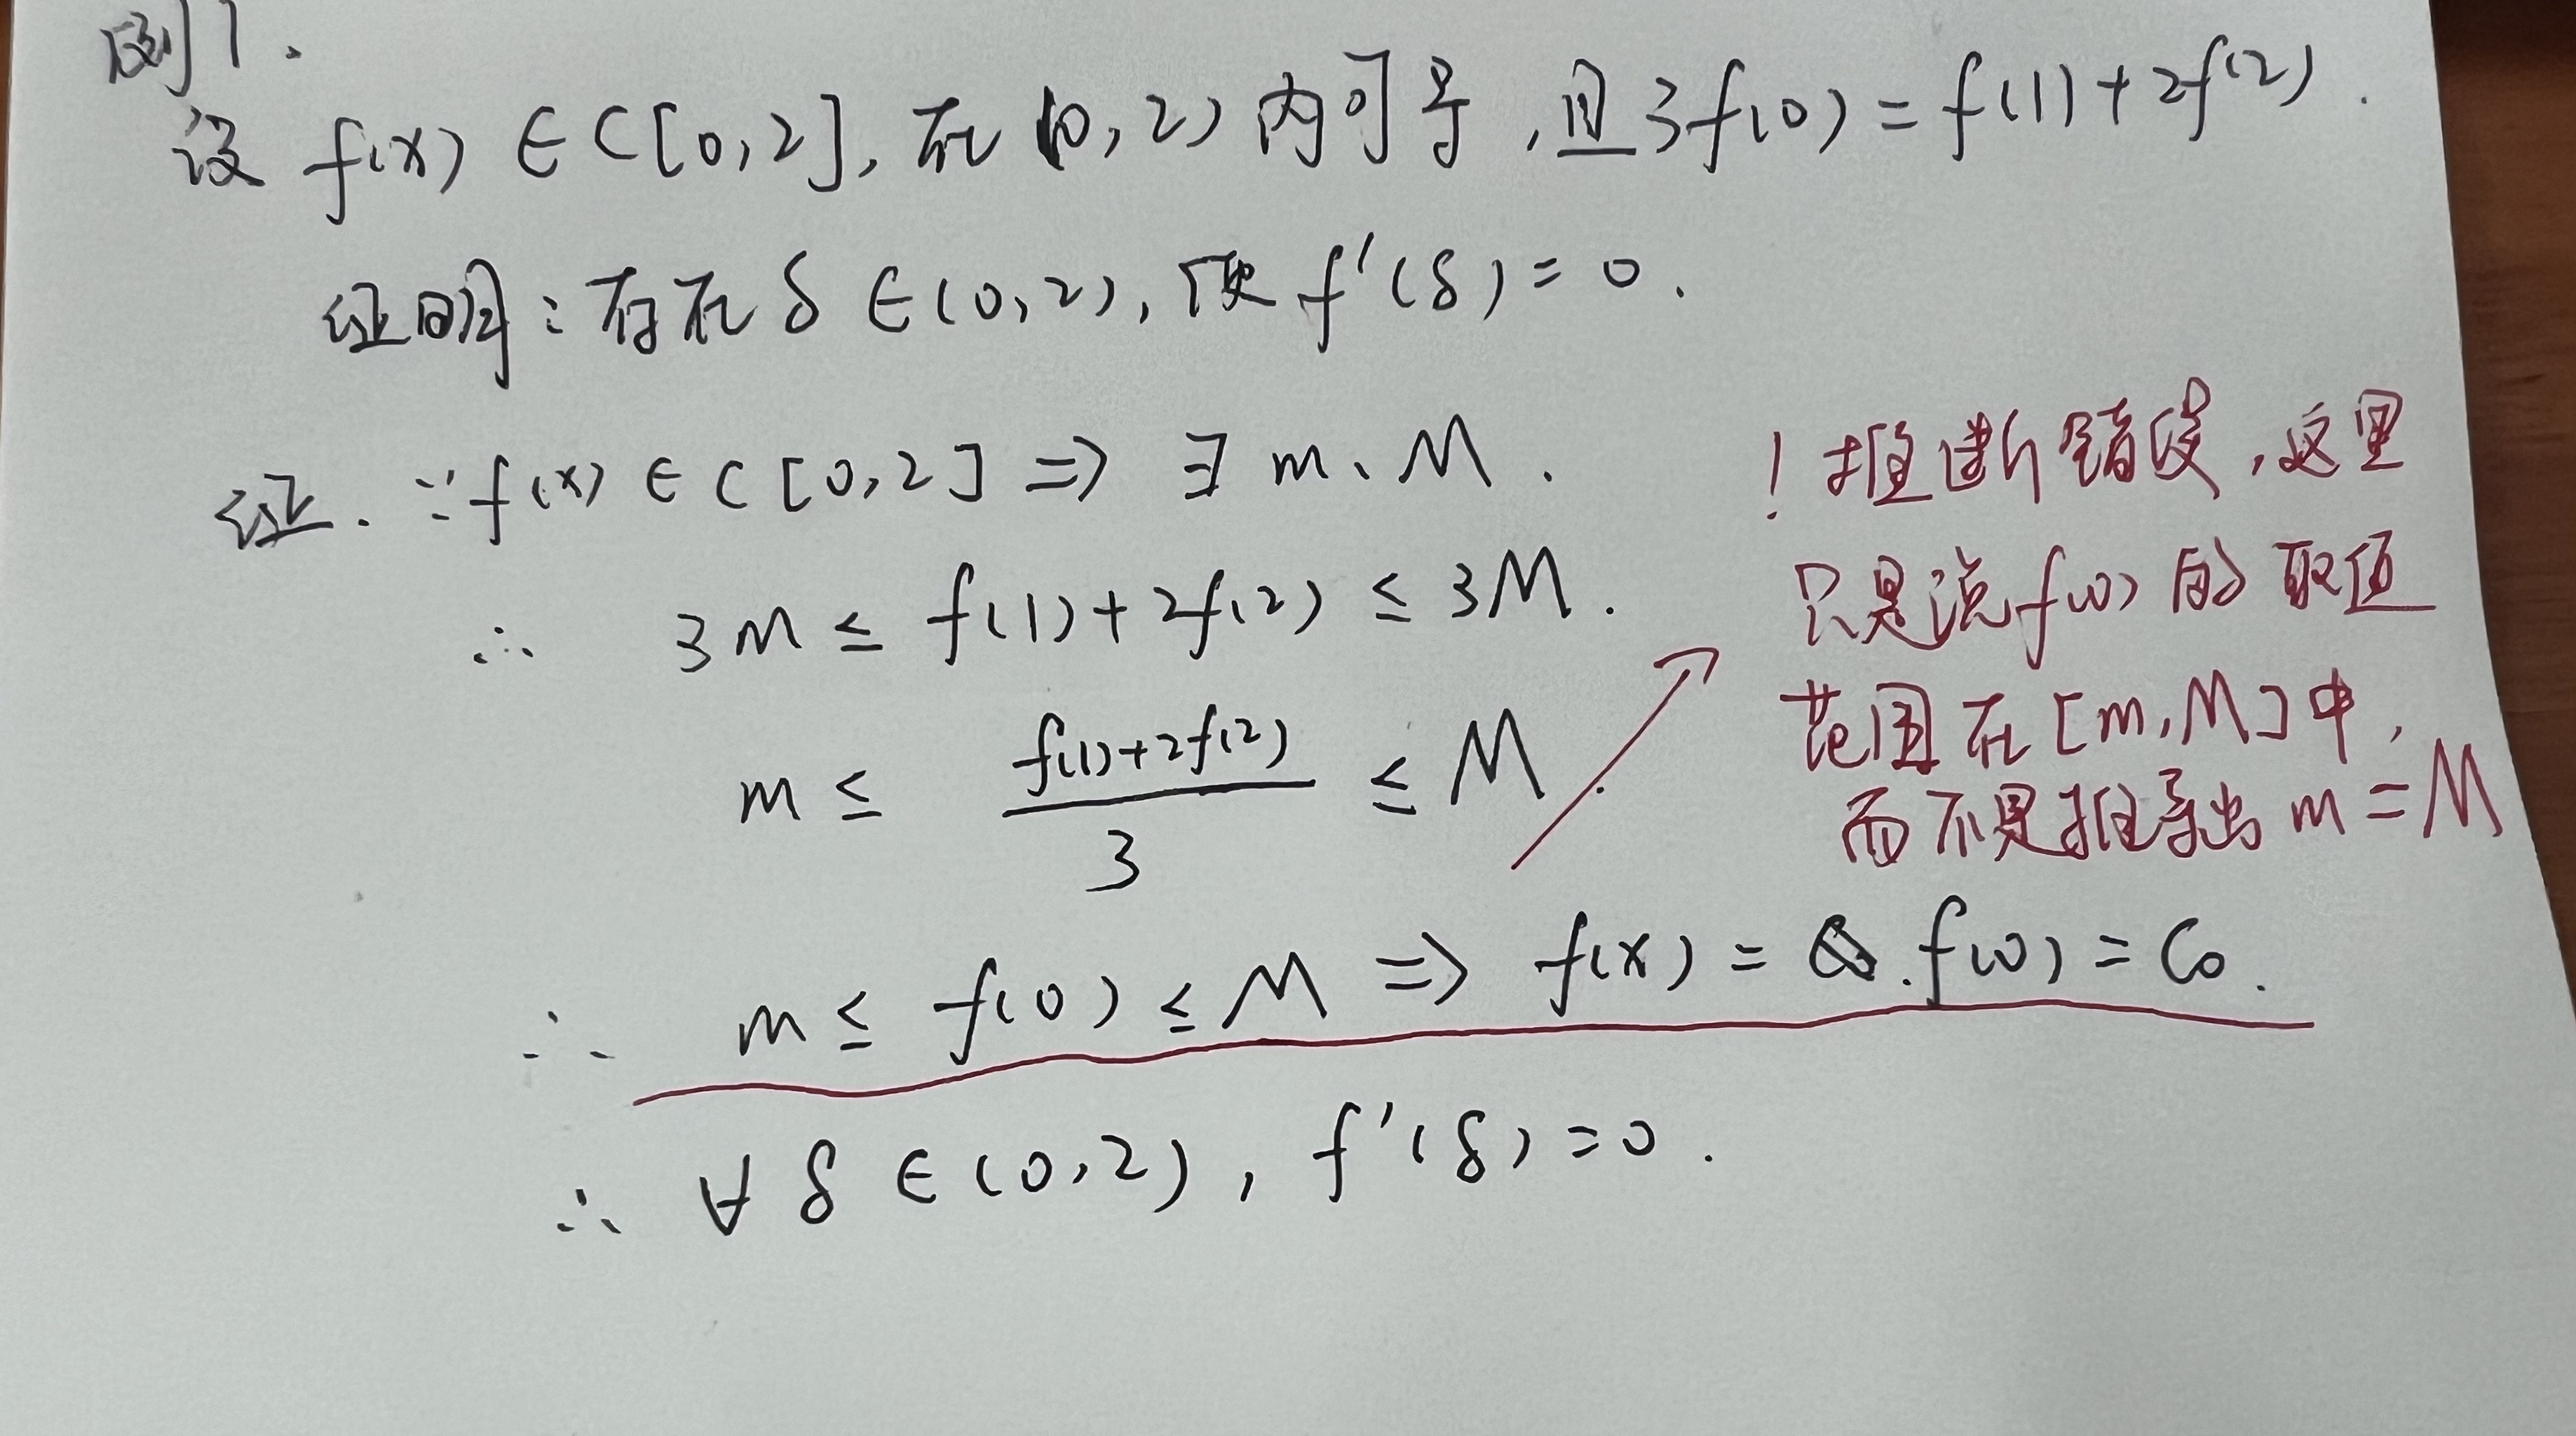 例1.
设 f(x) ∈ C[0,2], 在 (0,2) 内可导, 且 3f(0) = f(1) + 2f(2).
证明: 存在 δ ∈ (0,2), 使 f'(δ) = 0.
证. ∵ f(x) ∈ C[0,2] ⇒ ∃ m、M.
∴ 3m ≤ f(1) + 2f(2) ≤ 3M.
m ≤ (f(1)+2f(2))/3 ≤ M.
∴ m ≤ f(0) ≤ M ⇒ f(x) = f(0) = C₀.
∴ ∀ δ ∈ (0,2), f'(δ) = 0.
! 推断错误, 这里
只是说 f(0) 的取值
范围在 [m,M] 中,
而不是推导出 m = M